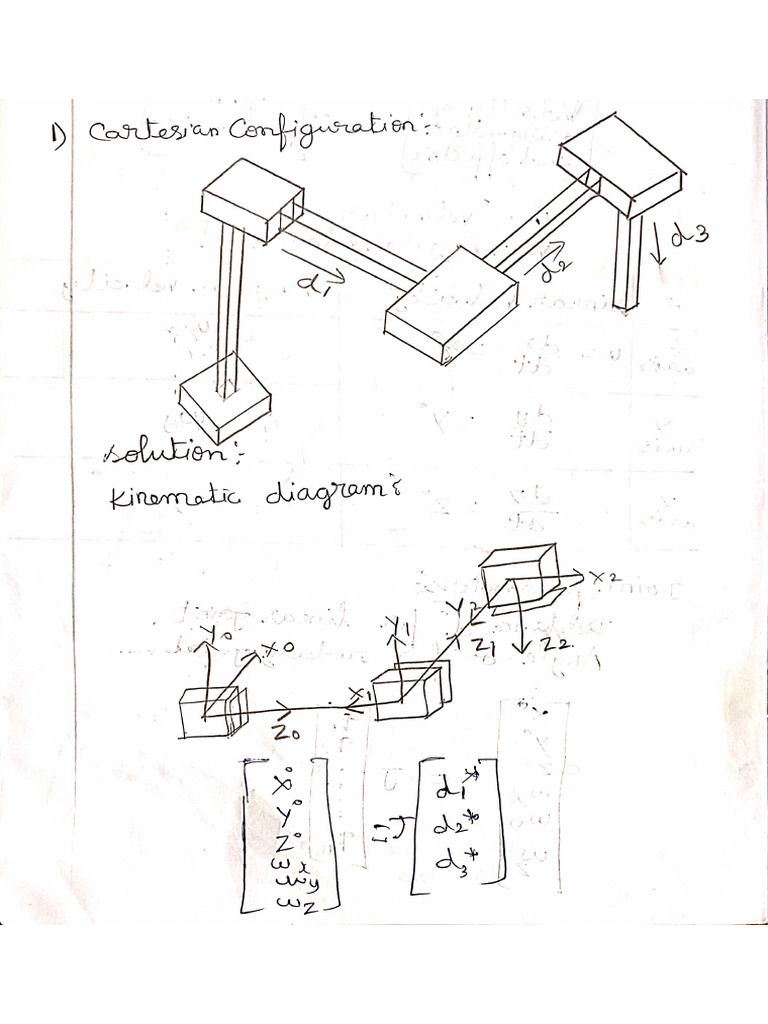 1) Cartesian Configuration:-
d1
d2
d3
Solution:-
Kinematic diagram:
X2
Y2
Y0
X0
Y1
Z1
Z2
X1
Z0
Ẋ
Ẏ
Ż
ωx
ωy
ωz
= J
d1*
d2*
d3*